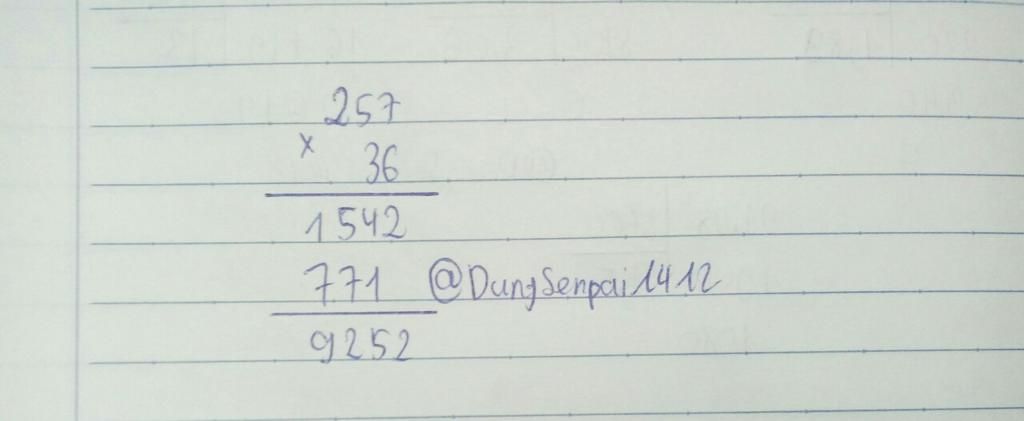 257
x
36
1542
771 @DungSenpai1412
9252